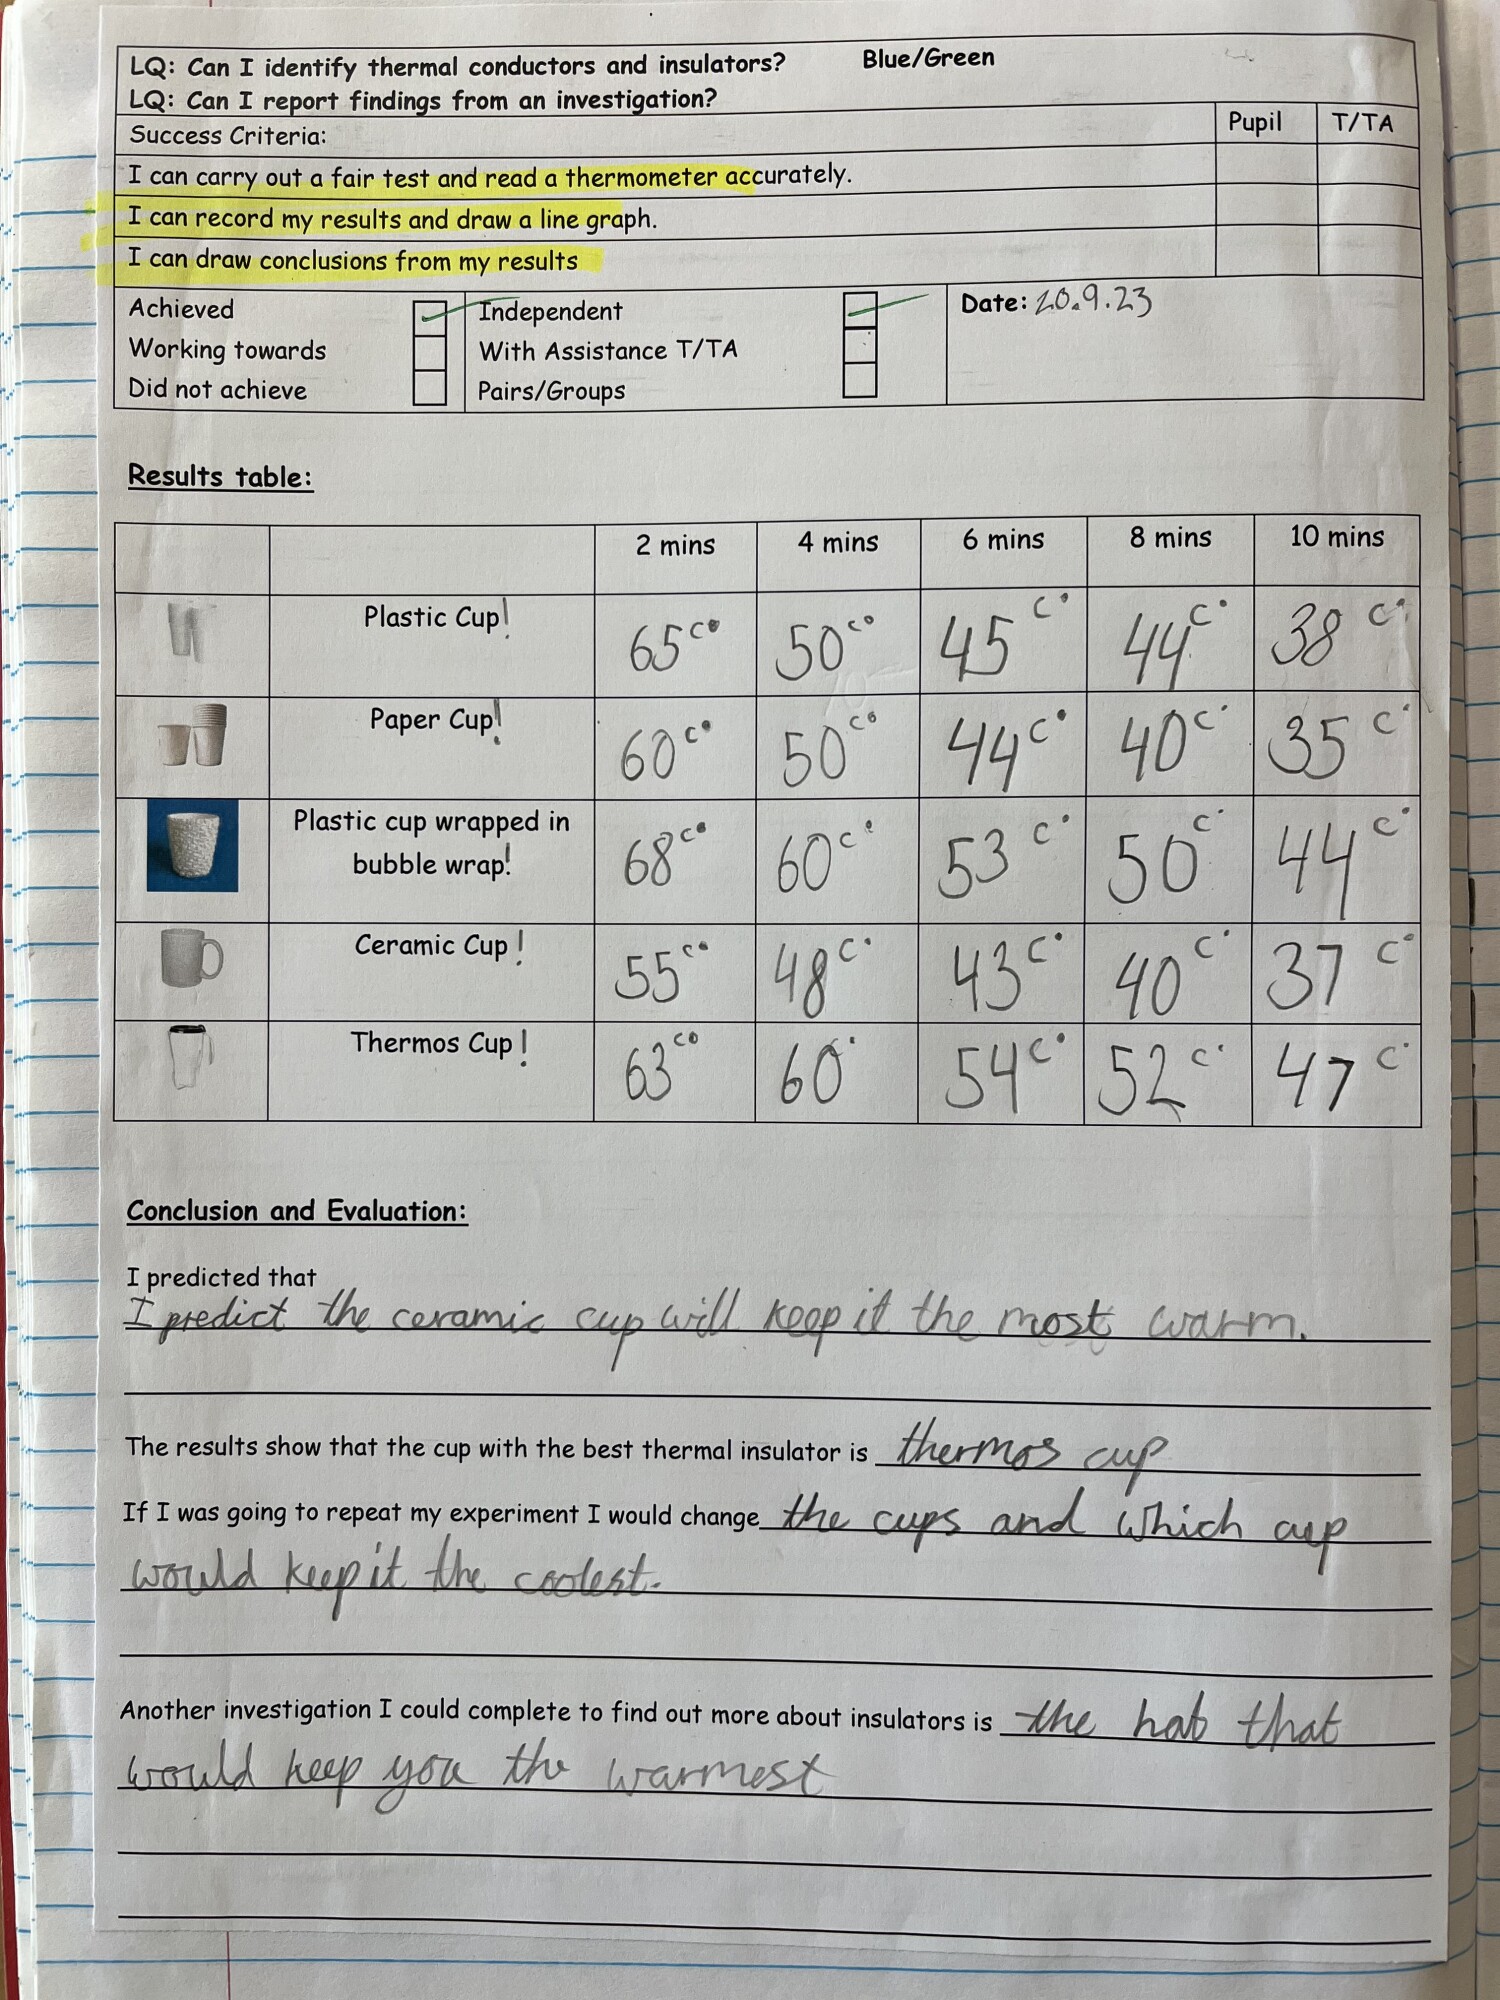 LQ: Can I identify thermal conductors and insulators? Blue/Green
LQ: Can I report findings from an investigation?
Success Criteria: Pupil T/TA
I can carry out a fair test and read a thermometer accurately.
I can record my results and draw a line graph.
I can draw conclusions from my results
Achieved Independent Date: 20.9.23
Working towards With Assistance T/TA
Did not achieve Pairs/Groups
Results table:
2 mins 4 mins 6 mins 8 mins 10 mins
Plastic Cup! 65c° 50c° 45c° 44c° 38c°
Paper Cup! 60c° 50c° 44c° 40c° 35c°
Plastic cup wrapped in
bubble wrap! 68c° 60c° 53c° 50c° 44c°
Ceramic Cup! 55c° 48c° 43c° 40c° 37c°
Thermos Cup! 63c° 60° 54c° 52c° 47c°
Conclusion and Evaluation:
I predicted that
I predict the ceramic cup will keep it the most warm.
The results show that the cup with the best thermal insulator is thermos cup
If I was going to repeat my experiment I would change the cups and which cup
would keep it the coolest.
Another investigation I could complete to find out more about insulators is the hat that
would keep you the warmest